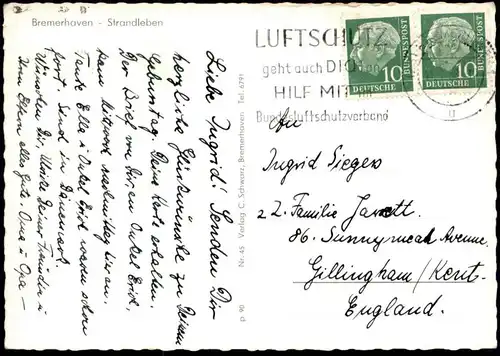 Bremerhaven - Strandleben
LUFTSCHUTZ
geht auch DICH an
HILF MIT im
Bundesluftschutzverband
10
DEUTSCHE BUNDESPOST
10
DEUTSCHE BUNDESPOST
Liebe Ingrid! Senden Dir
herzliche Glückwünsche zu Deinem
Geburtstag. Deine Karte erhalten.
Der Brief von Dir, an Onkel Erich,
kam Mittwoch nachmittag hier an.
Tante Ella u. Onkel Erich waren schon
fort. Sind in Dänemark.
Wünschen Dir, Deiner Freundin u.
Ihren Eltern alles gute Oma u Opa —
Nr. 45 Verlag C. Schwarz, Bremerhaven Tel. 6791
p 90
An
Ingrid Siegers
z Z. Familie Jarrett.
86. Sunnymead Avenue.
Gillingham/Kent.
England.